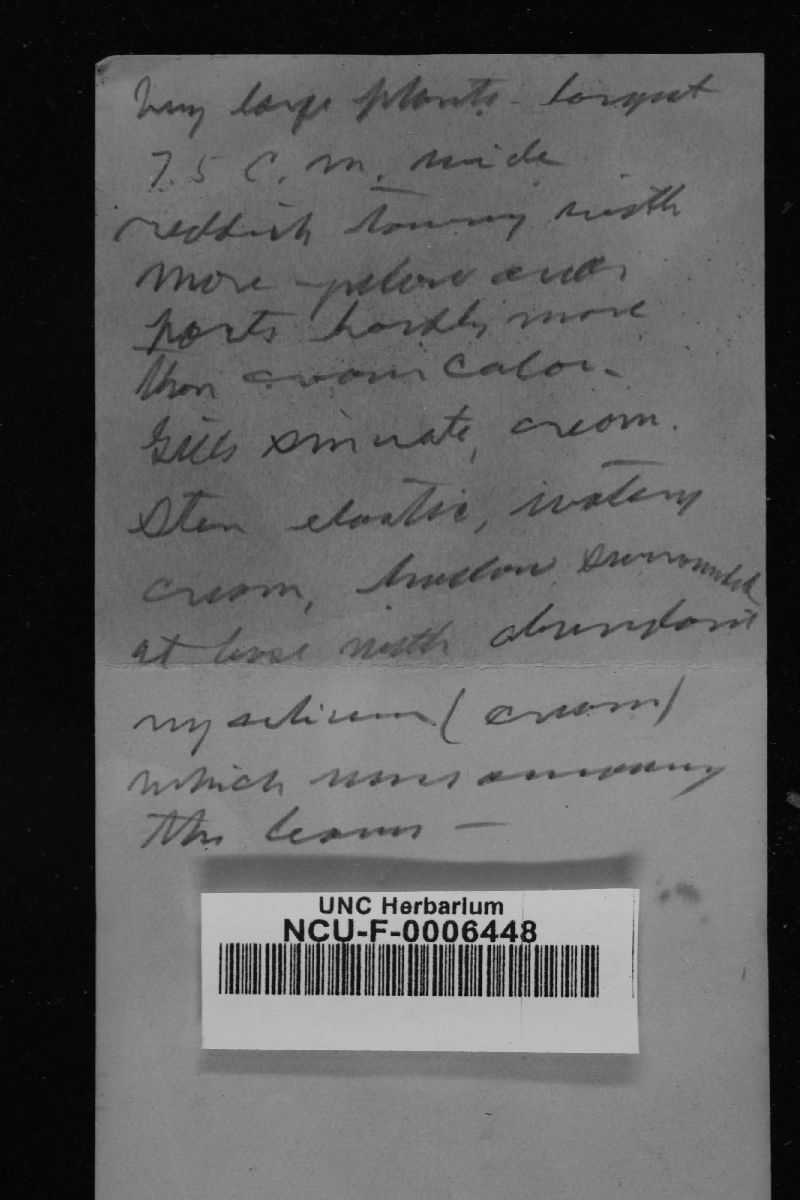 Very large plants - largest
7.5 C.m. wide
reddish tawny with
more yellow areas
parts hardly more
than cream color -
Gills sinuate, cream.
Stem elastic, watery
cream, hollow surrounded
at base with abundant
mycelium (cream)
which runs among
the leaves -
UNC Herbarium
NCU-F-0006448